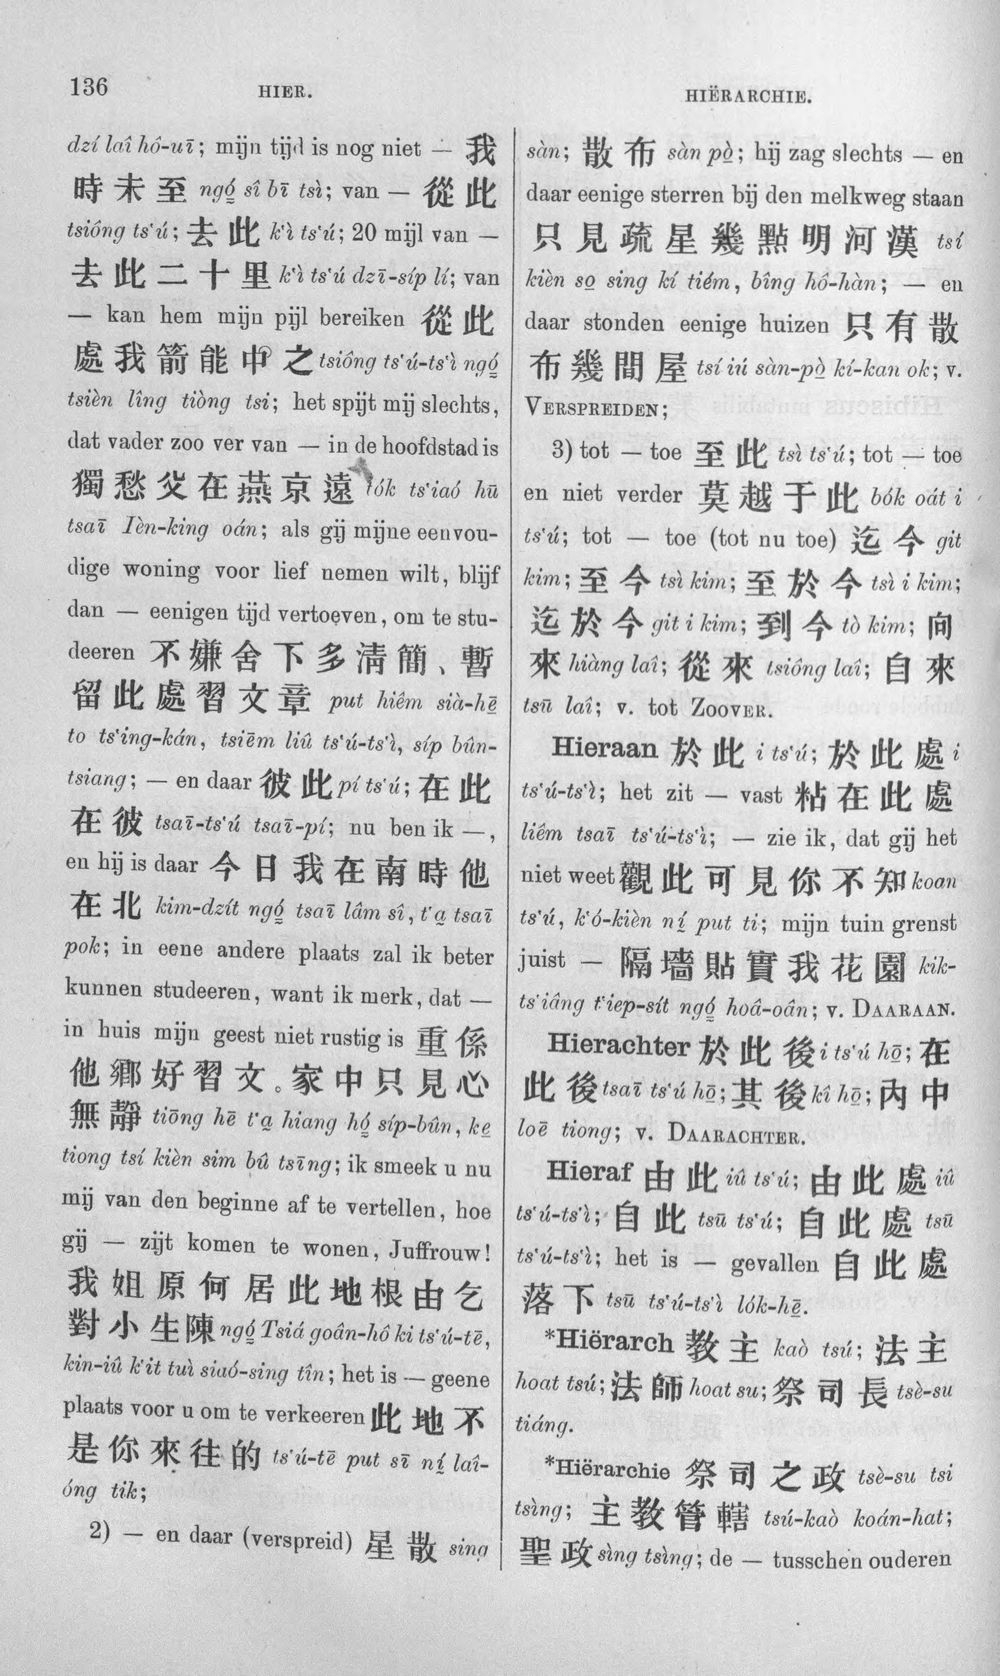 136
HIER.
HIËRARCHIE.
dzí laî hô-uī; mijn tijd is nog niet — 我
時未至 ngó sî bī tsì; van — 從此
tsiông ts‘ú; 去此 k‘ì ts‘ú; 20 mijl van —
去此二十里 k‘ì ts‘ú dzī-síp lí; van
— kan hem mijn pijl bereiken 從此
處我箭能中之 tsiông ts‘ú-ts‘ì ngó
tsièn lîng tiòng tsi; het spijt mij slechts,
dat vader zoo ver van — in de hoofdstad is
獨愁父在燕京遠 tók ts‘iaó hū
tsaī Ièn-king oán; als gij mijne eenvou-
dige woning voor lief nemen wilt, blijf
dan — eenigen tijd vertoeven, om te stu-
deeren 不嫌舍下多清簡、暫
留此處習文章 put hiêm sià-hē
to ts‘ing-kán, tsiēm liû ts‘ú-ts‘ì, síp bûn-
tsiang; — en daar 彼此 pí ts‘ú; 在此
在彼 tsaī-ts‘ú tsaī-pí; nu ben ik —,
en hij is daar 今日我在南時他
在北 kim-dzít ngó tsaī lâm sî, t‘a tsaī
pok; in eene andere plaats zal ik beter
kunnen studeeren, want ik merk, dat —
in huis mijn geest niet rustig is 重係
他鄉好習文。家中只見心
無靜 tiōng hē t‘a hiang hó síp-bûn, ke
tiong tsí kièn sim bû tsīng; ik smeek u nu
mij van den beginne af te vertellen, hoe
gij — zijt komen te wonen, Juffrouw!
我姐原何居此地根由乞
對小生陳 ngó Tsiá goân-hô ki ts‘ú-tē,
kin-iû k‘it tuì siaó-sing tîn; het is — geene
plaats voor u om te verkeeren 此地不
是你來往的 ts‘ú-tē put sī ní laî-
óng tik;
2) — en daar (verspreid) 星散 sing
sàn; 散布 sàn pò; hij zag slechts — en
daar eenige sterren bij den melkweg staan
只見疏星幾點明河漢 tsí
kièn so sing kí tiém, bîng hô-hàn; — en
daar stonden eenige huizen 只有散
布幾間屋 tsí iú sàn-pò kí-kan ok; v.
VERSPREIDEN;
3) tot — toe 至此 tsì ts‘ú; tot — toe
en niet verder 莫越于此 bók oát i
ts‘ú; tot — toe (tot nu toe) 迄今 git
kim; 至今 tsì kim; 至於今 tsì i kim;
迄於今 git i kim; 到今 tò kim; 向
來 hiàng laî; 從來 tsiông laî; 自來
tsū laî; v. tot ZOOVER.
Hieraan 於此 i ts‘ú; 於此處 i
ts‘ú-ts‘ì; het zit — vast 粘在此處
liêm tsaī ts‘ú-ts‘ì; — zie ik, dat gij het
niet weet 觀此可見你不知 koan
ts‘ú, k‘ó-kièn ní put ti; mijn tuin grenst
juist — 隔墻貼實我花園 kik-
ts‘iâng t‘iep-sít ngó hoâ-oân; v. DAARAAN.
Hierachter 於此後 i ts‘ú hō; 在
此後 tsaī ts‘ú hō; 其後 kî hō; 內中
loē tiong; v. DAARACHTER.
Hieraf 由此 iû ts‘ú; 由此處 iû
ts‘ú-ts‘ì; 自此 tsū ts‘ú; 自此處 tsū
ts‘ú-ts‘ì; het is — gevallen 自此處
落下 tsū ts‘ú-ts‘ì lók-hē.
*Hiërarch 教主 kaò tsú; 法主
hoat tsú; 法師 hoat su; 祭司長 tsè-su
tiáng.
*Hiërarchie 祭司之政 tsè-su tsi
tsìng; 主教管轄 tsú-kaò koán-hat;
聖政 sìng tsìng; de — tusschen ouderen